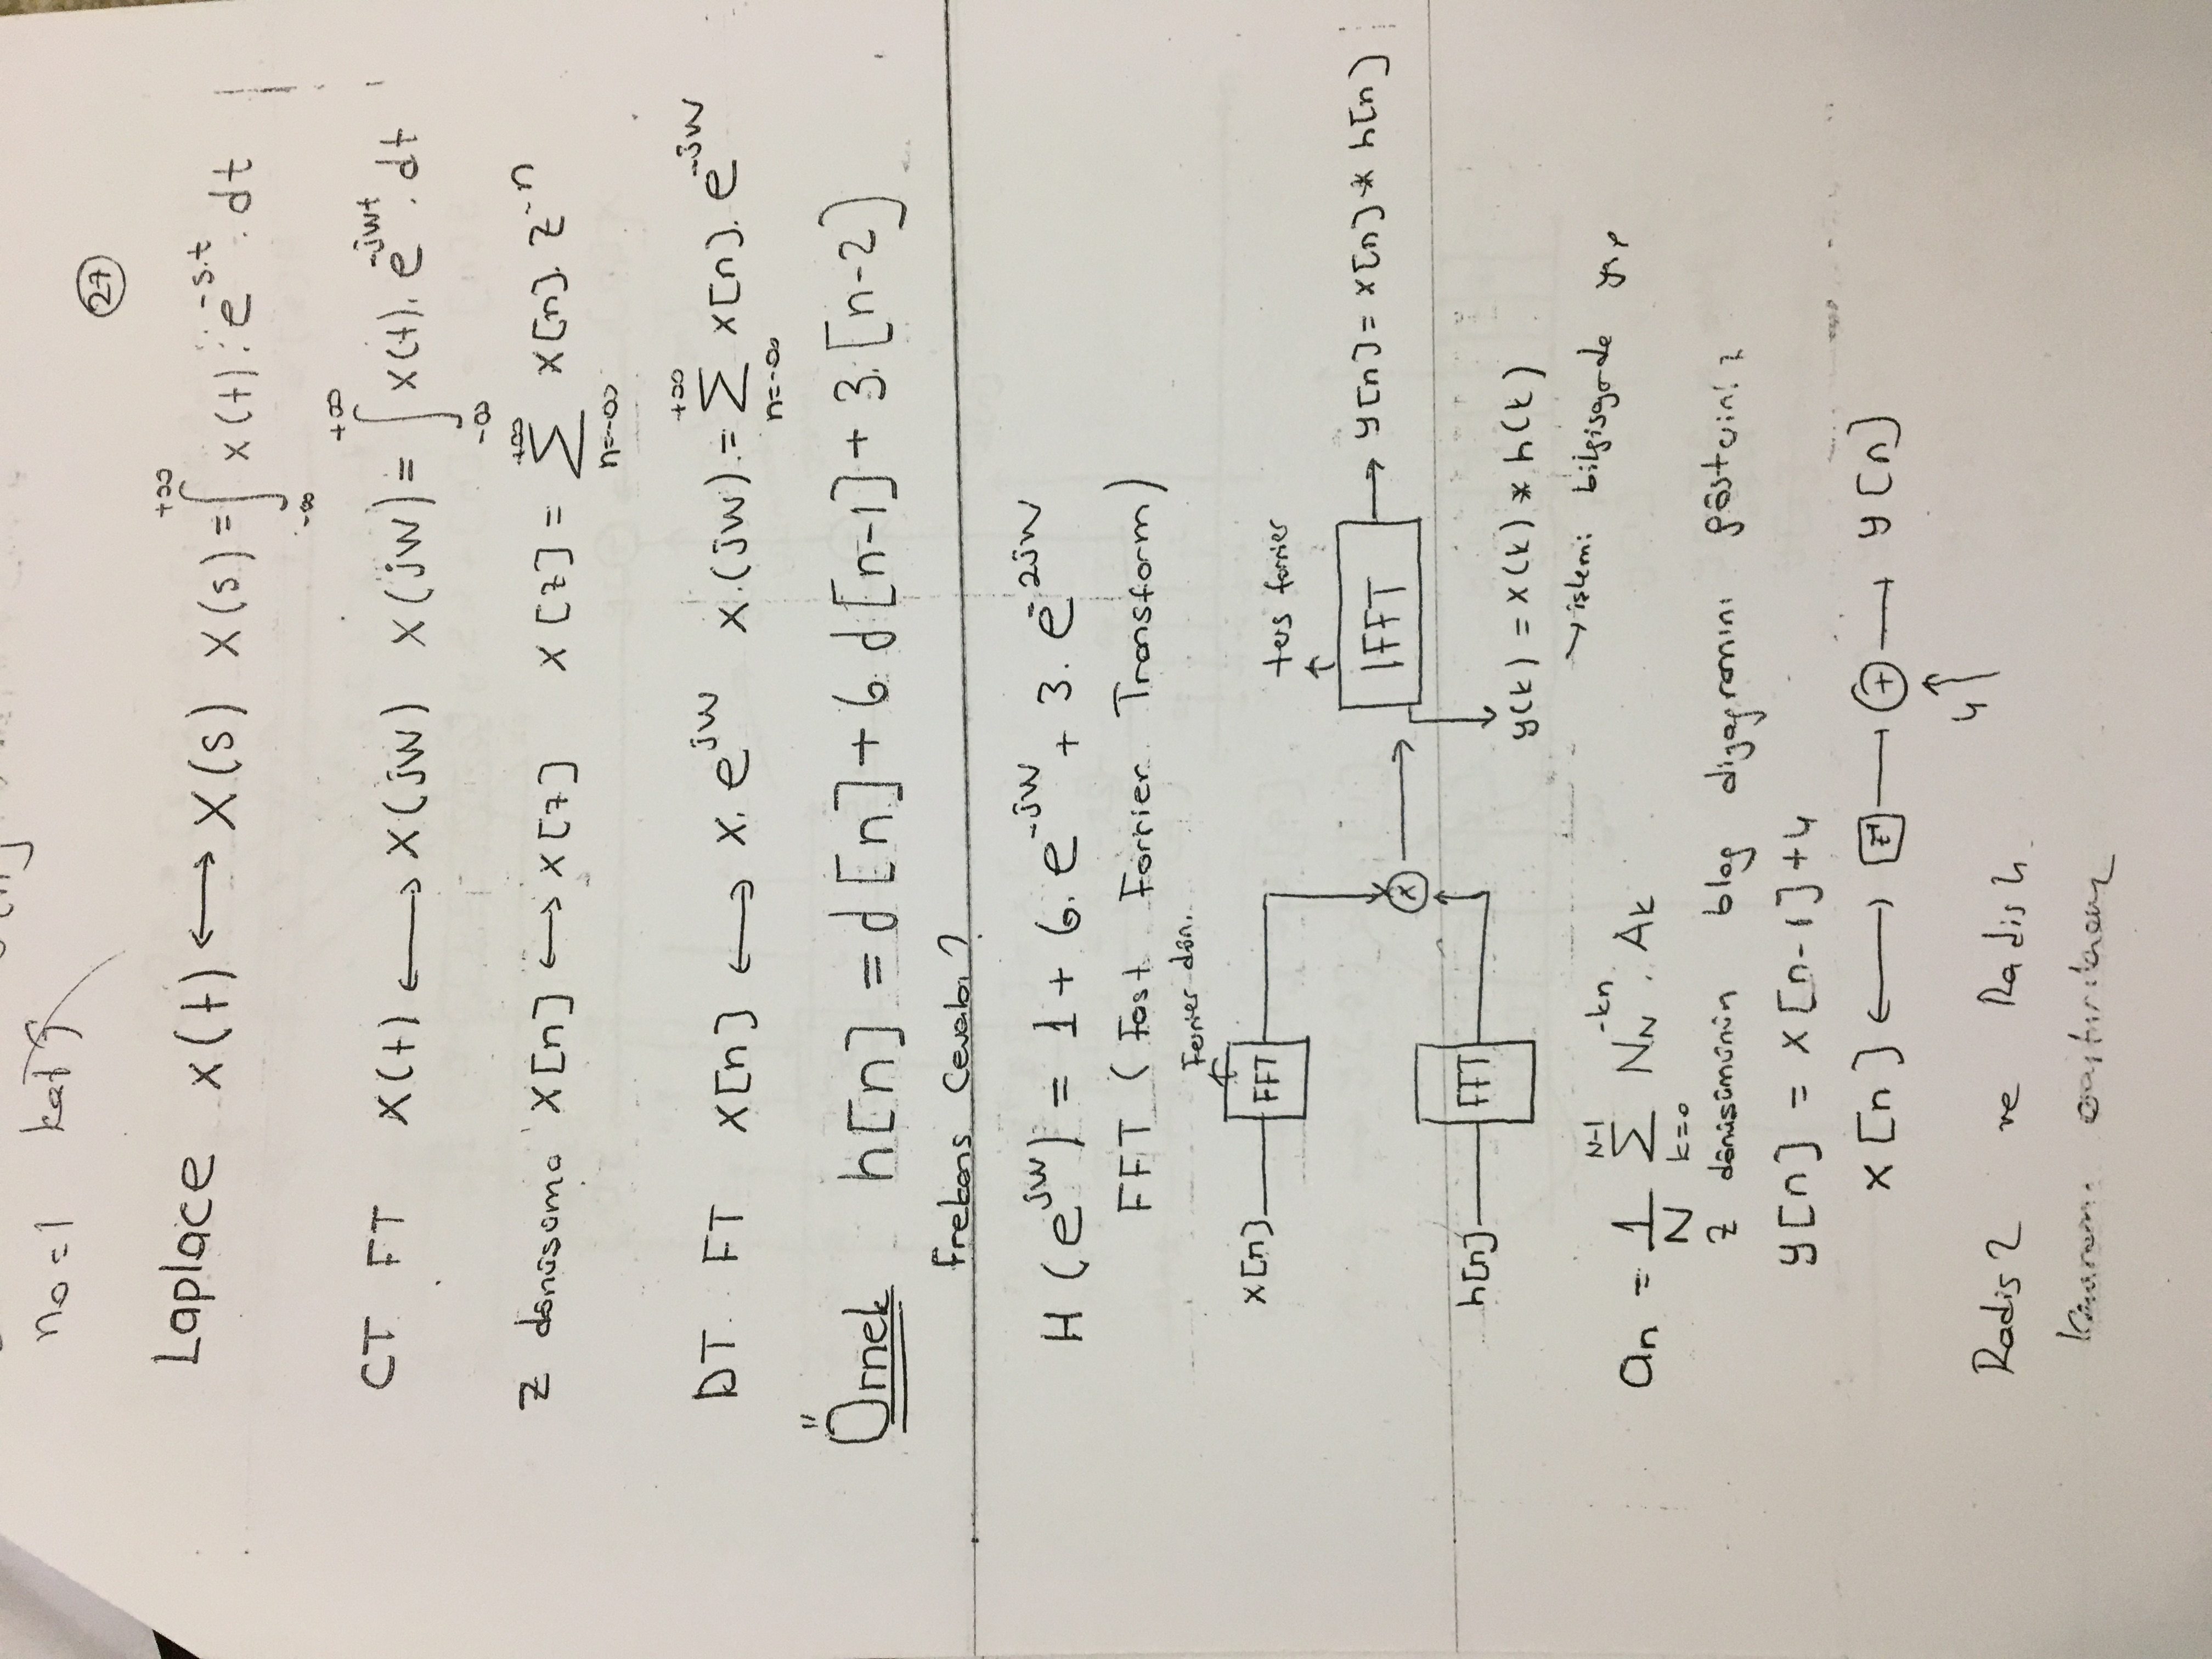 n₀ = 1 kat
27
Laplace x(t) ⟷ X(s) X(s) = ∫_{-∞}^{+∞} x(t) . e^{-s.t} . dt
CT FT X(t) ⟷ X(jw) X(jw) = ∫_{-∞}^{+∞} x(t) . e^{-jwt} . dt
Z dönüşümü X[n] ⟷ X[z] X[z] = ∑_{n=-∞}^{+∞} X[n] . z^{-n}
DT. FT X[n] ⟷ X. e^{jw} X.(jw). = ∑_{n=-∞}^{+∞} X[n] . e^{-jw}
Örnek h[n] = d[n] + 6 d[n-1] + 3.[n-2]
Frekans Cevabı ?
H(e^{jw}) = 1 + 6. e^{-jw} + 3. e^{-2jw}
FFT (Fast Forrier Transform)
Forrier dön.
x[n] FFT
ters forrier
x IFFT → y[n] = x[n] * h[n]
h[n] FFT
y(k) = x(k) * h(k)
→ işlemi bilgisayarda yap
aₙ = 1/N ∑_{k=0}^{N-1} N_N^{-kn} . A_k
Z dönüşümünün blog diyagramını gösteriniz
y[n] = x[n-1] + 4
x[n] ⟷ z⁻¹ → + → y[n]
4
Radis 2 ve Radis 4